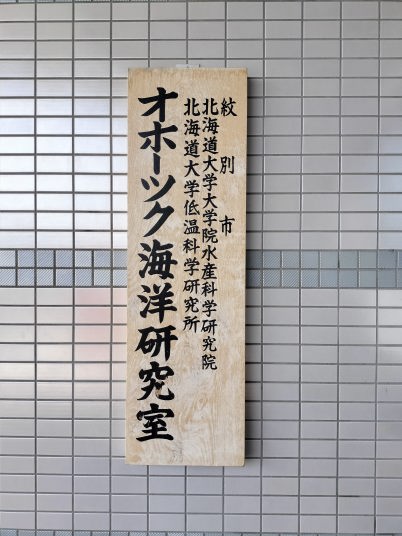 紋別市
北海道大学大学院水産科学研究院
北海道大学低温科学研究所
オホーツク海洋研究室